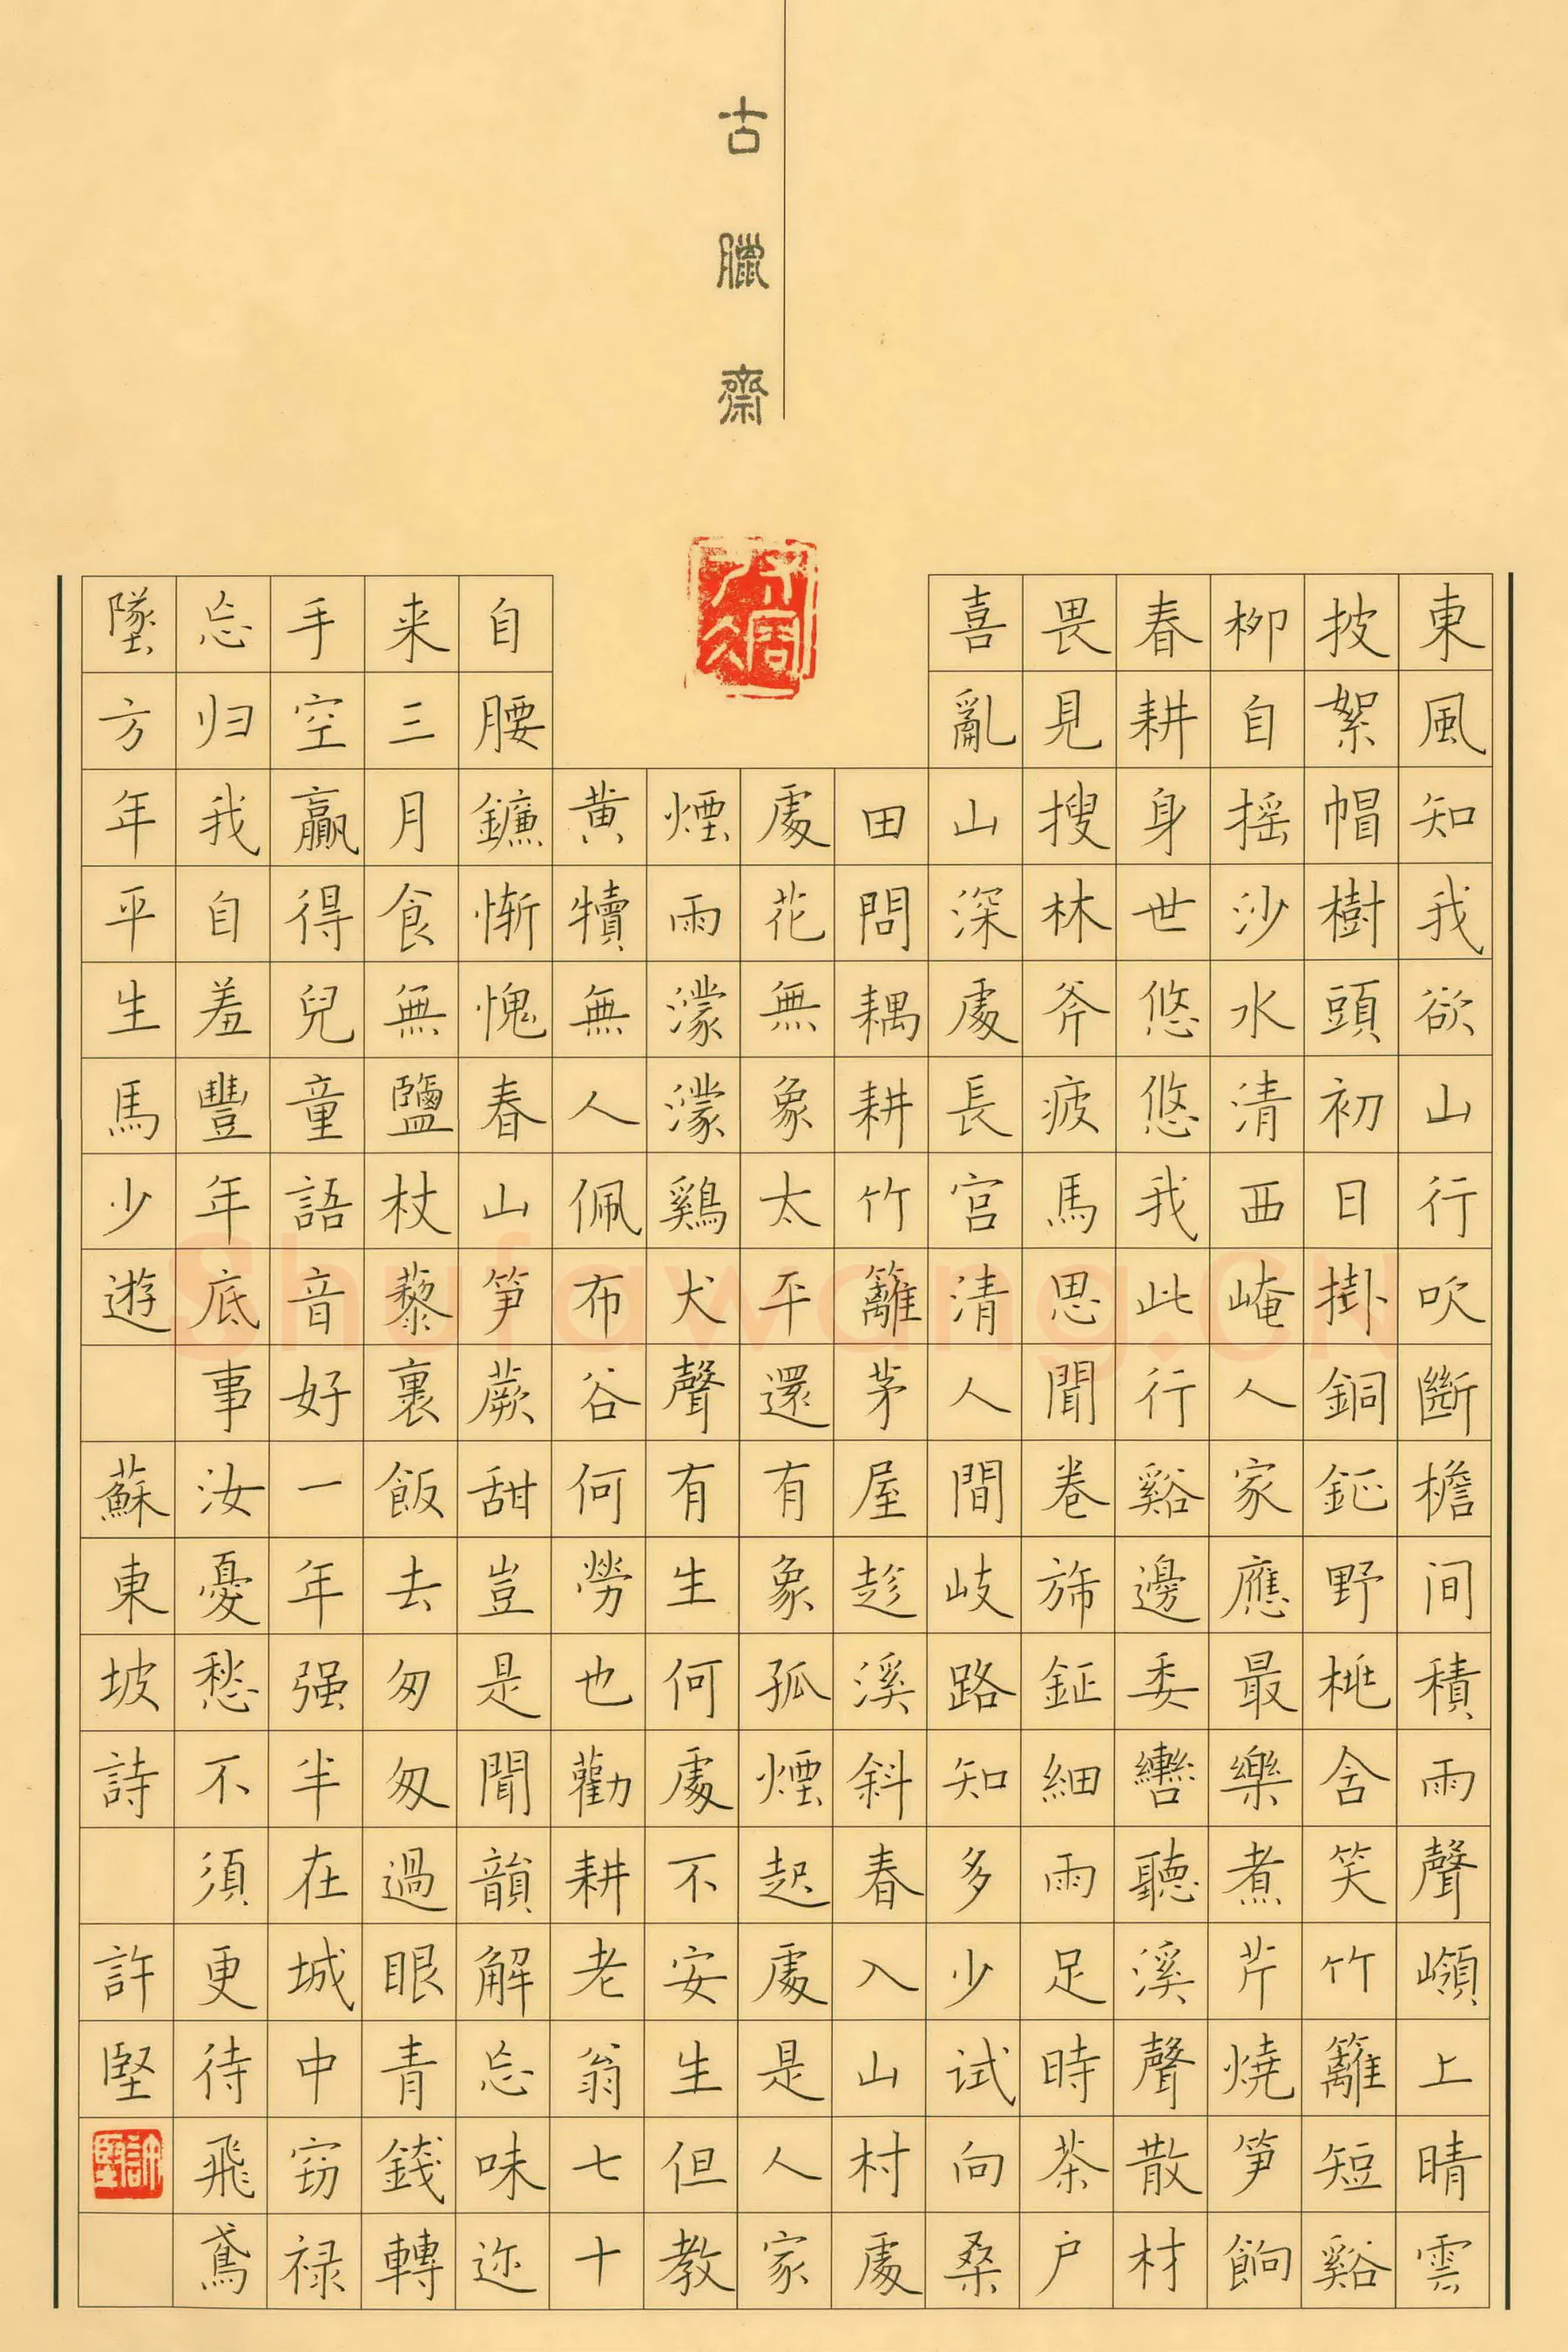 古臘齋
東風知我欲山行吹斷檐间積雨聲嶺上晴雲
披絮帽樹頭初日掛銅鉦野桃含笑竹籬短谿
柳自摇沙水清西崦人家應最樂煮芹燒笋餉
春耕身世悠悠我此行谿邊委轡聽溪聲散材
畏見搜林斧疲馬思聞卷旆鉦細雨足時茶户
喜亂山深處長官清人間岐路知多少试向桑
田問耦耕竹籬茅屋趁溪斜春入山村處
處花無象太平還有象孤煙起處是人家
煙雨濛濛鷄犬聲有生何處不安生但教
黄犢無人佩布谷何勞也勸耕老翁七十
自腰鐮慚愧春山笋蕨甜豈是聞韻解忘味迩
来三月食無鹽杖藜裹飯去匆匆過眼青錢轉
手空贏得兒童語音好一年强半在城中窃禄
忘归我自羞豐年底事汝憂愁不須更待飛鳶
墜方年平生馬少遊 蘇東坡詩 許堅
許堅
Shufawang.CN